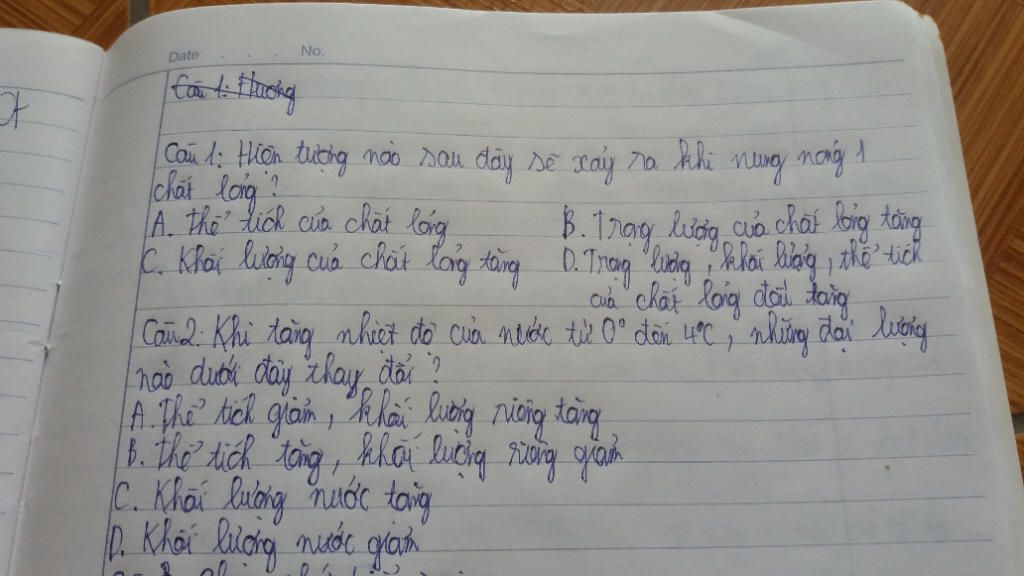 Date . . . . No.
Câu 1: Hương
Câu 1: Hiện tượng nào sau đây sẽ xảy ra khi nung nóng 1
chất lỏng?
A. Thể tích của chất lỏng B. Trọng lượng của chất lỏng tăng
C. Khối lượng của chất lỏng tăng D. Trọng lượng, khối lượng, thể tích
của chất lỏng đều tăng
Câu 2: Khi tăng nhiệt độ của nước từ 0° đến 4°C, những đại lượng
nào dưới đây thay đổi?
A. Thể tích giảm, khối lượng riêng tăng
B. Thể tích tăng, khối lượng riêng giảm
C. Khối lượng nước tăng
D. Khối lượng nước giảm